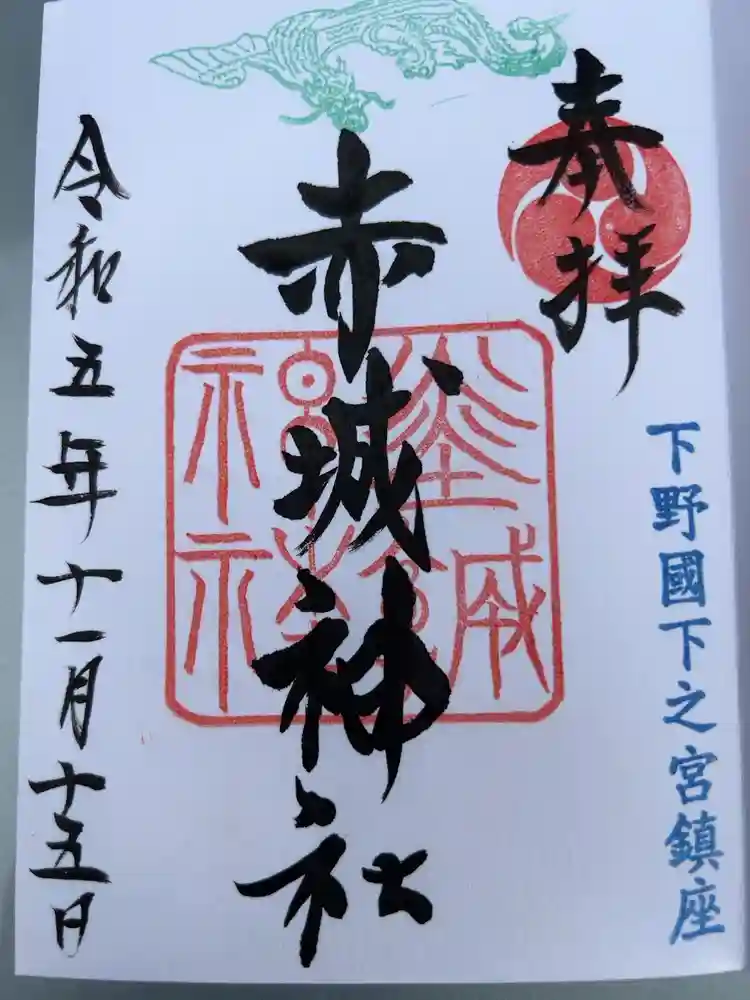 奉拝
下野國下之宮鎮座
赤城神社
令和五年十一月十五日